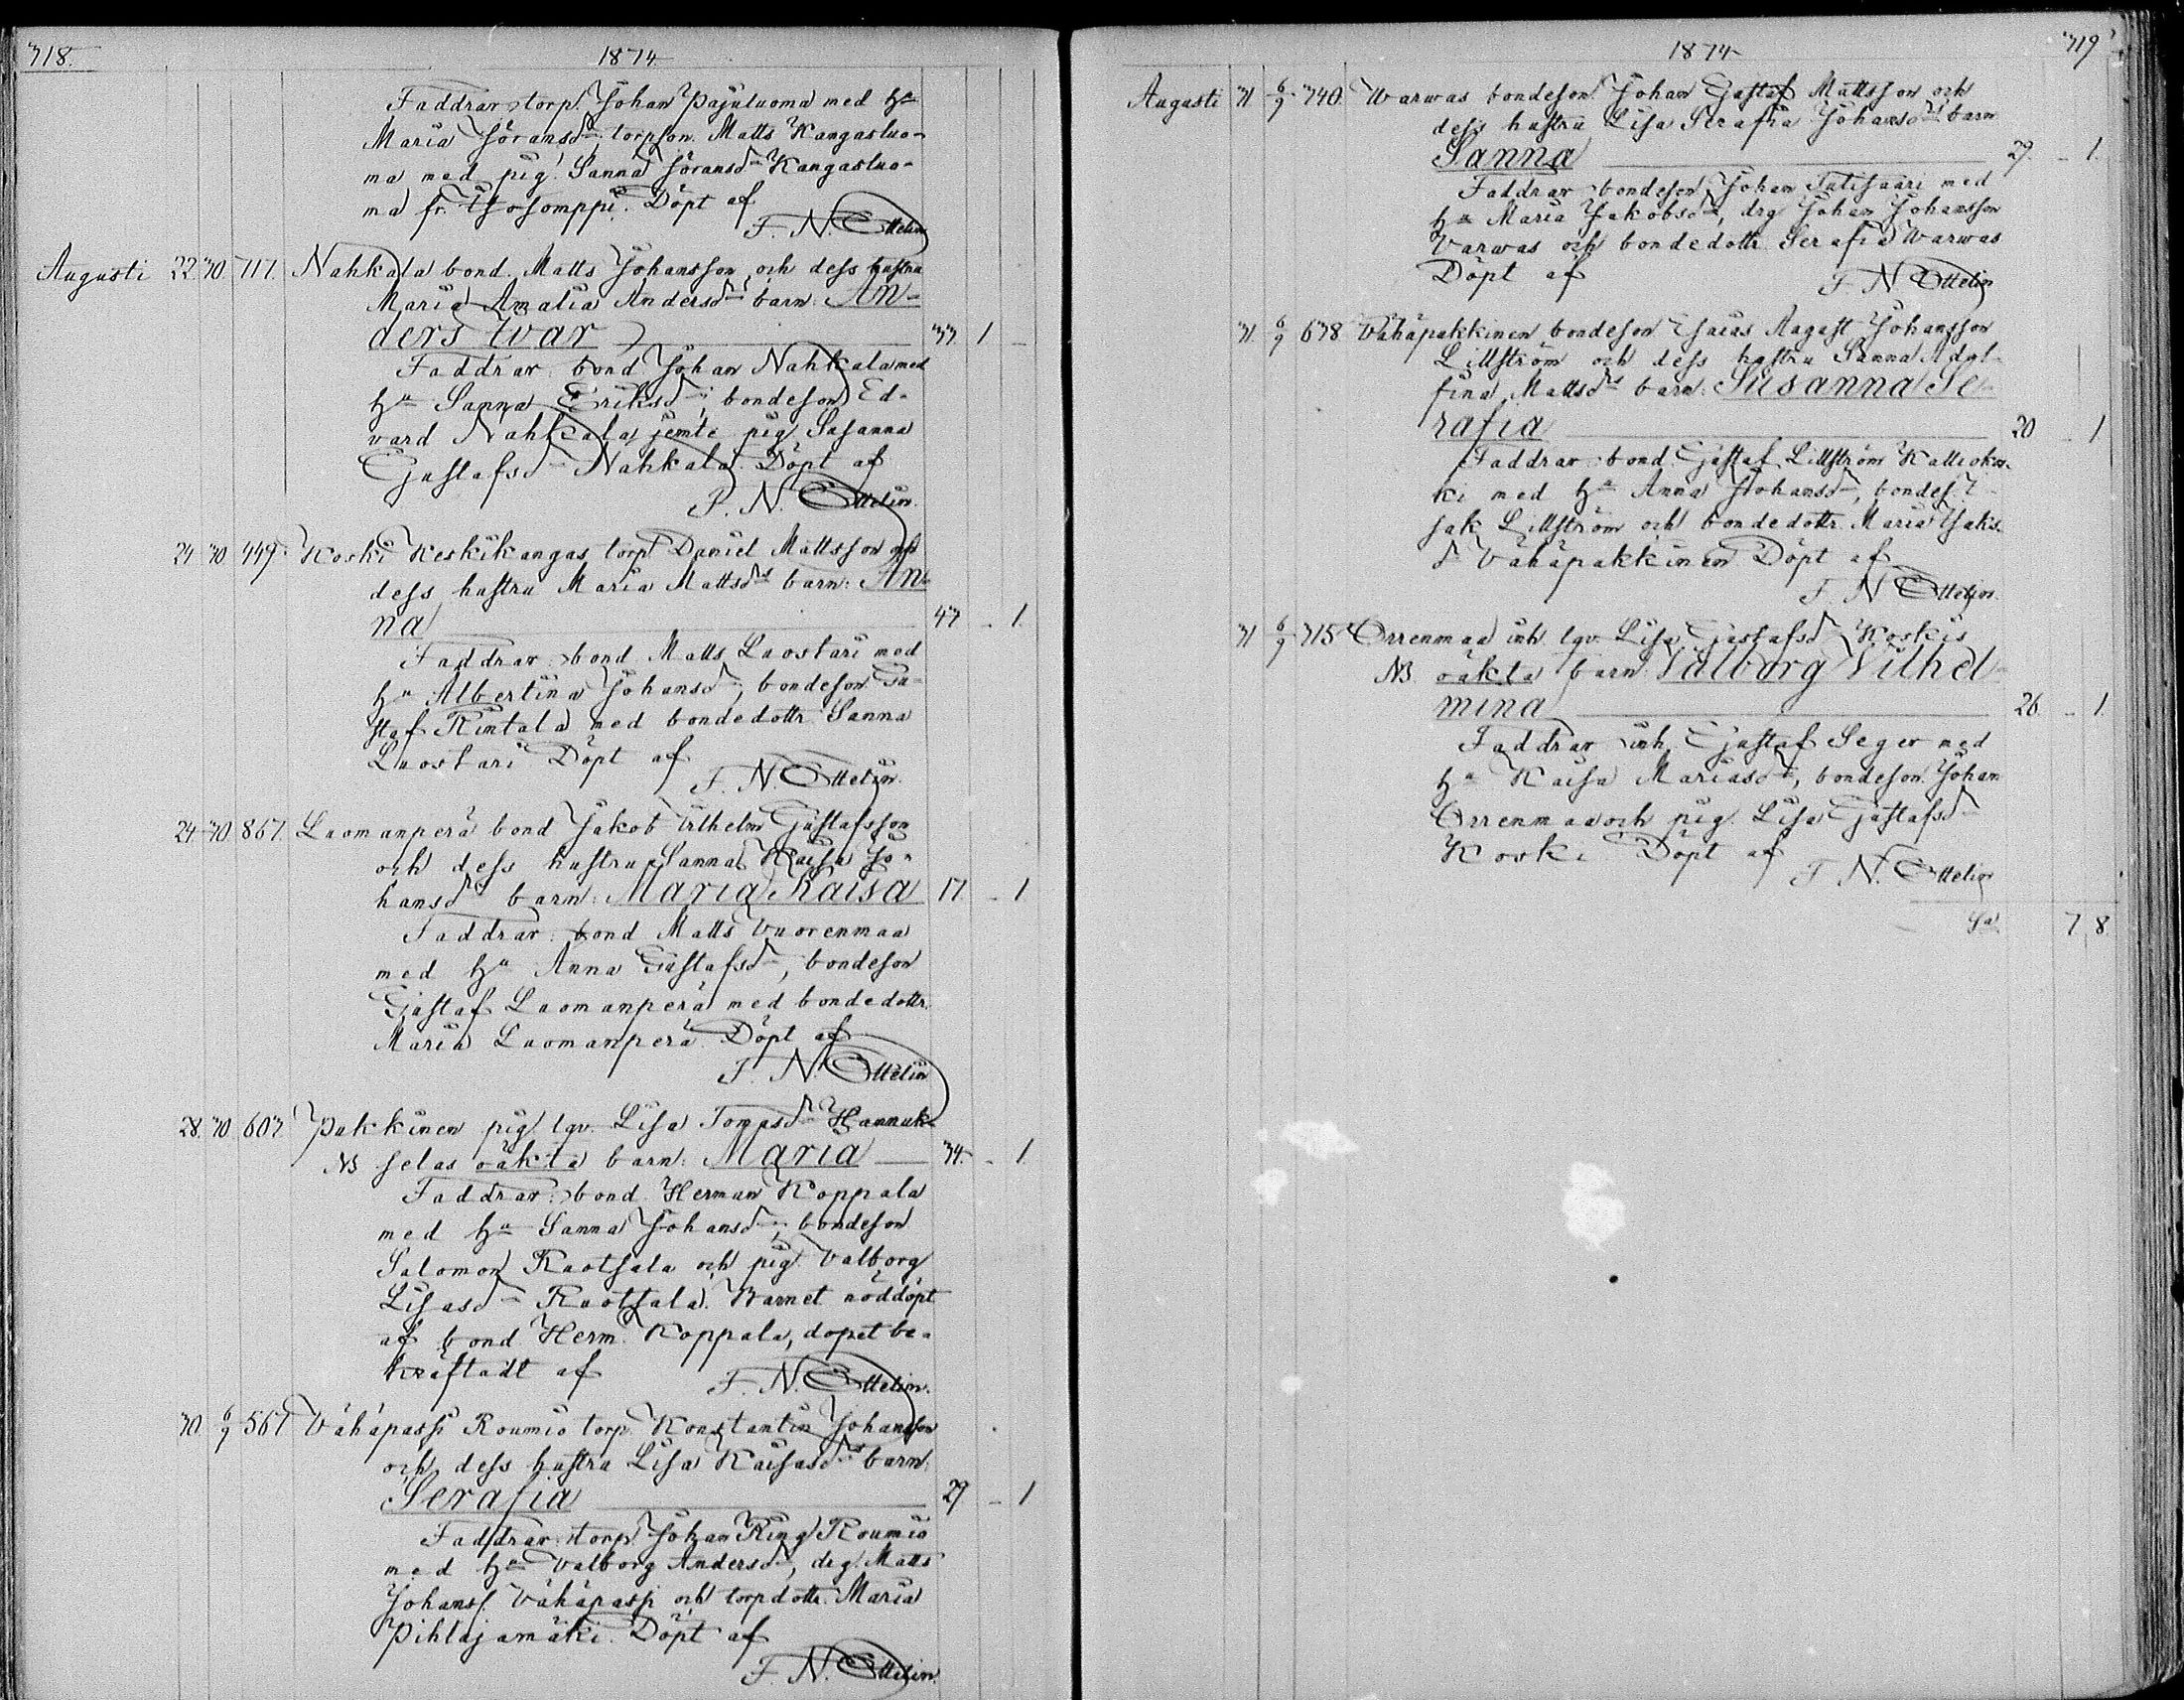 318.
1874.
Faddrar: torp. Johan Pajuluoma med hu
Maria Göransdr; torpson. Matts Kangasluo-
ma med pig. Sanna Göransdr Kangasluo-
ma fr. Isosomppi. Döpt af
F. N. Ottelin
Augusti 22 30 717. Nahkala bond. Matts Johansson och dess hustru
Maria Amalia Andersdrs barn: An-
ders Ivar 33. 1 -
Faddrar: bond Johan Nahkala med
hu Sanna Eriksdr; bondeson Ed-
vard Nahkala jemte pig. Susanna
Gustafsdr Nahkala. Döpt af
F. N. Ottelin.
24 30 449. Koski Keskikangas torp. Daniel Mattsson och
dess hustru Maria Mattsdrs barn: An-
na 43 - 1.
Faddrar: bond Matts Luostari med
hu Albertina Johansdr; bondeson Gu-
staf Rintala med bondedottr. Sanna
Luostari Döpt af
F. N. Ottelin.
24 30 867. Luomanperä bond Jakob Vilhelm Gustafsson
och dess hustru Sanna Kaisa Jo-
hansdrs barn: Maria Kaisa 17. - 1.
Faddrar: bond Matts Vuorenmaa
med hu Anna Gustafsdr, bondeson
Gustaf Luomanperä med bondedottr.
Maria Luomanperä. Döpt af
F. N. Ottelin
28. 30 603. Pakkinen pig. lgv. Lisa Tomasdr Hannuk-
NB selas oäkta barn: Maria 34. - 1.
Faddrar: bond. Herman Koppala
med hu Sanna Johansdr; bondeson
Salomon Ruotsala och pig. Valborg
Lisasdr Ruotsala. Barnet nöddöpt
af bond Herm. Koppala, dopet be-
kräftadt af
F. N. Ottelin.
30. 6/9 567 Vähäpassi Roumio torp. Konstantin Johansson
och dess hustru Lisa Kaisasdrs barn:
Serafia 29 - 1
Faddrar: torp. Johan Ring Roumio
med hu Valborg Andersdr, drg. Matts
Johanss. Vähäpassi och torpdottr. Maria
Pihlajamäki. Döpt af
F. N. Ottelin.
1874
319
Augusti 31 6/9 740. Warwas bondeson Johan Gustaf Mattsson och
dess hustru Lisa Serafia Johansdrs barn
Sanna 29. - 1.
Faddrar: bondeson Johan Sutisaari med
hu Maria Jakobsdr, drg Johan Johansson
Varwas och bondedottr. Serafia Warwas
Döpt af
F. N. Ottelin
31. 6/9 638 Vähäpakkinen bondeson Esaias August Johansson
Lillström och dess hustru Sanna Adol-
fina Mattsdrs barn: Susanna Se-
rafia 20 - 1
Faddrar: bond. Gustaf Lillström Kalliokos-
ki med hu Anna Johansdr, bondes. I-
sak Lillström och bondedottr. Maria Isaks-
dr Vähäpakkinen Döpt af
F. N. Ottelin.
31 6/9 315 Orrenmaa inh. lgv. Lisa Gustafsdr Koskis
NB. oäkta barn Valborg Vilhel-
mina 26. - 1.
Faddrar inh. Gustaf Seger med
hu Kaisa Mariasdr, bondeson. Johan
Orrenmaa och pig. Lisa Gustafsdr
Koski Döpt af
F. N. Ottelin
Sa. 7 8.